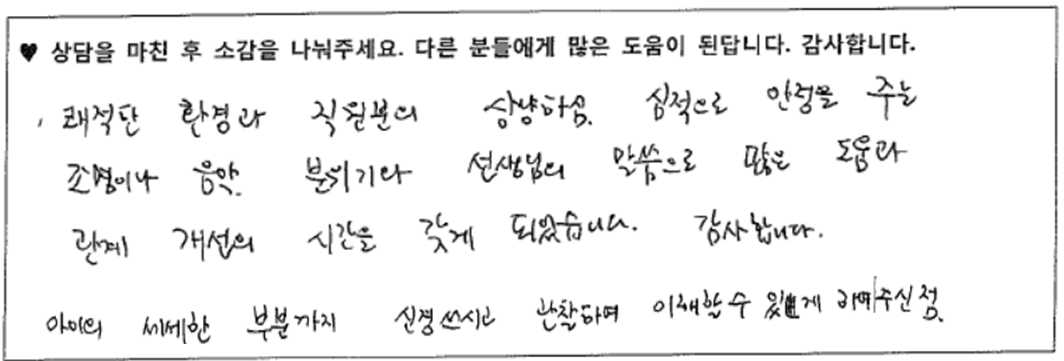 ♥ 상담을 마친 후 소감을 나눠주세요. 다른 분들에게 많은 도움이 된답니다. 감사합니다.
쾌적한 환경과 직원분의 상냥하심. 심적으로 안정을 주는
조명이나 음악. 분위기와 선생님의 말씀으로 많은 도움과
관계 개선의 시간을 갖게 되었습니다. 감사합니다.
아이의 세세한 부분까지 신경쓰시고 관찰하며 이해할 수 있게 하여주신 점.